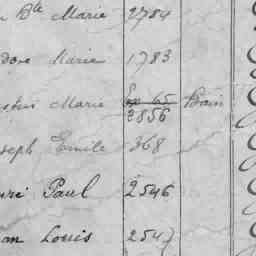 n Bte Marie 2784
dore Marie 1783
Marie Ep 65 Bain
3856
seph Emile 368
nri Paul 2546
an Louis 2547